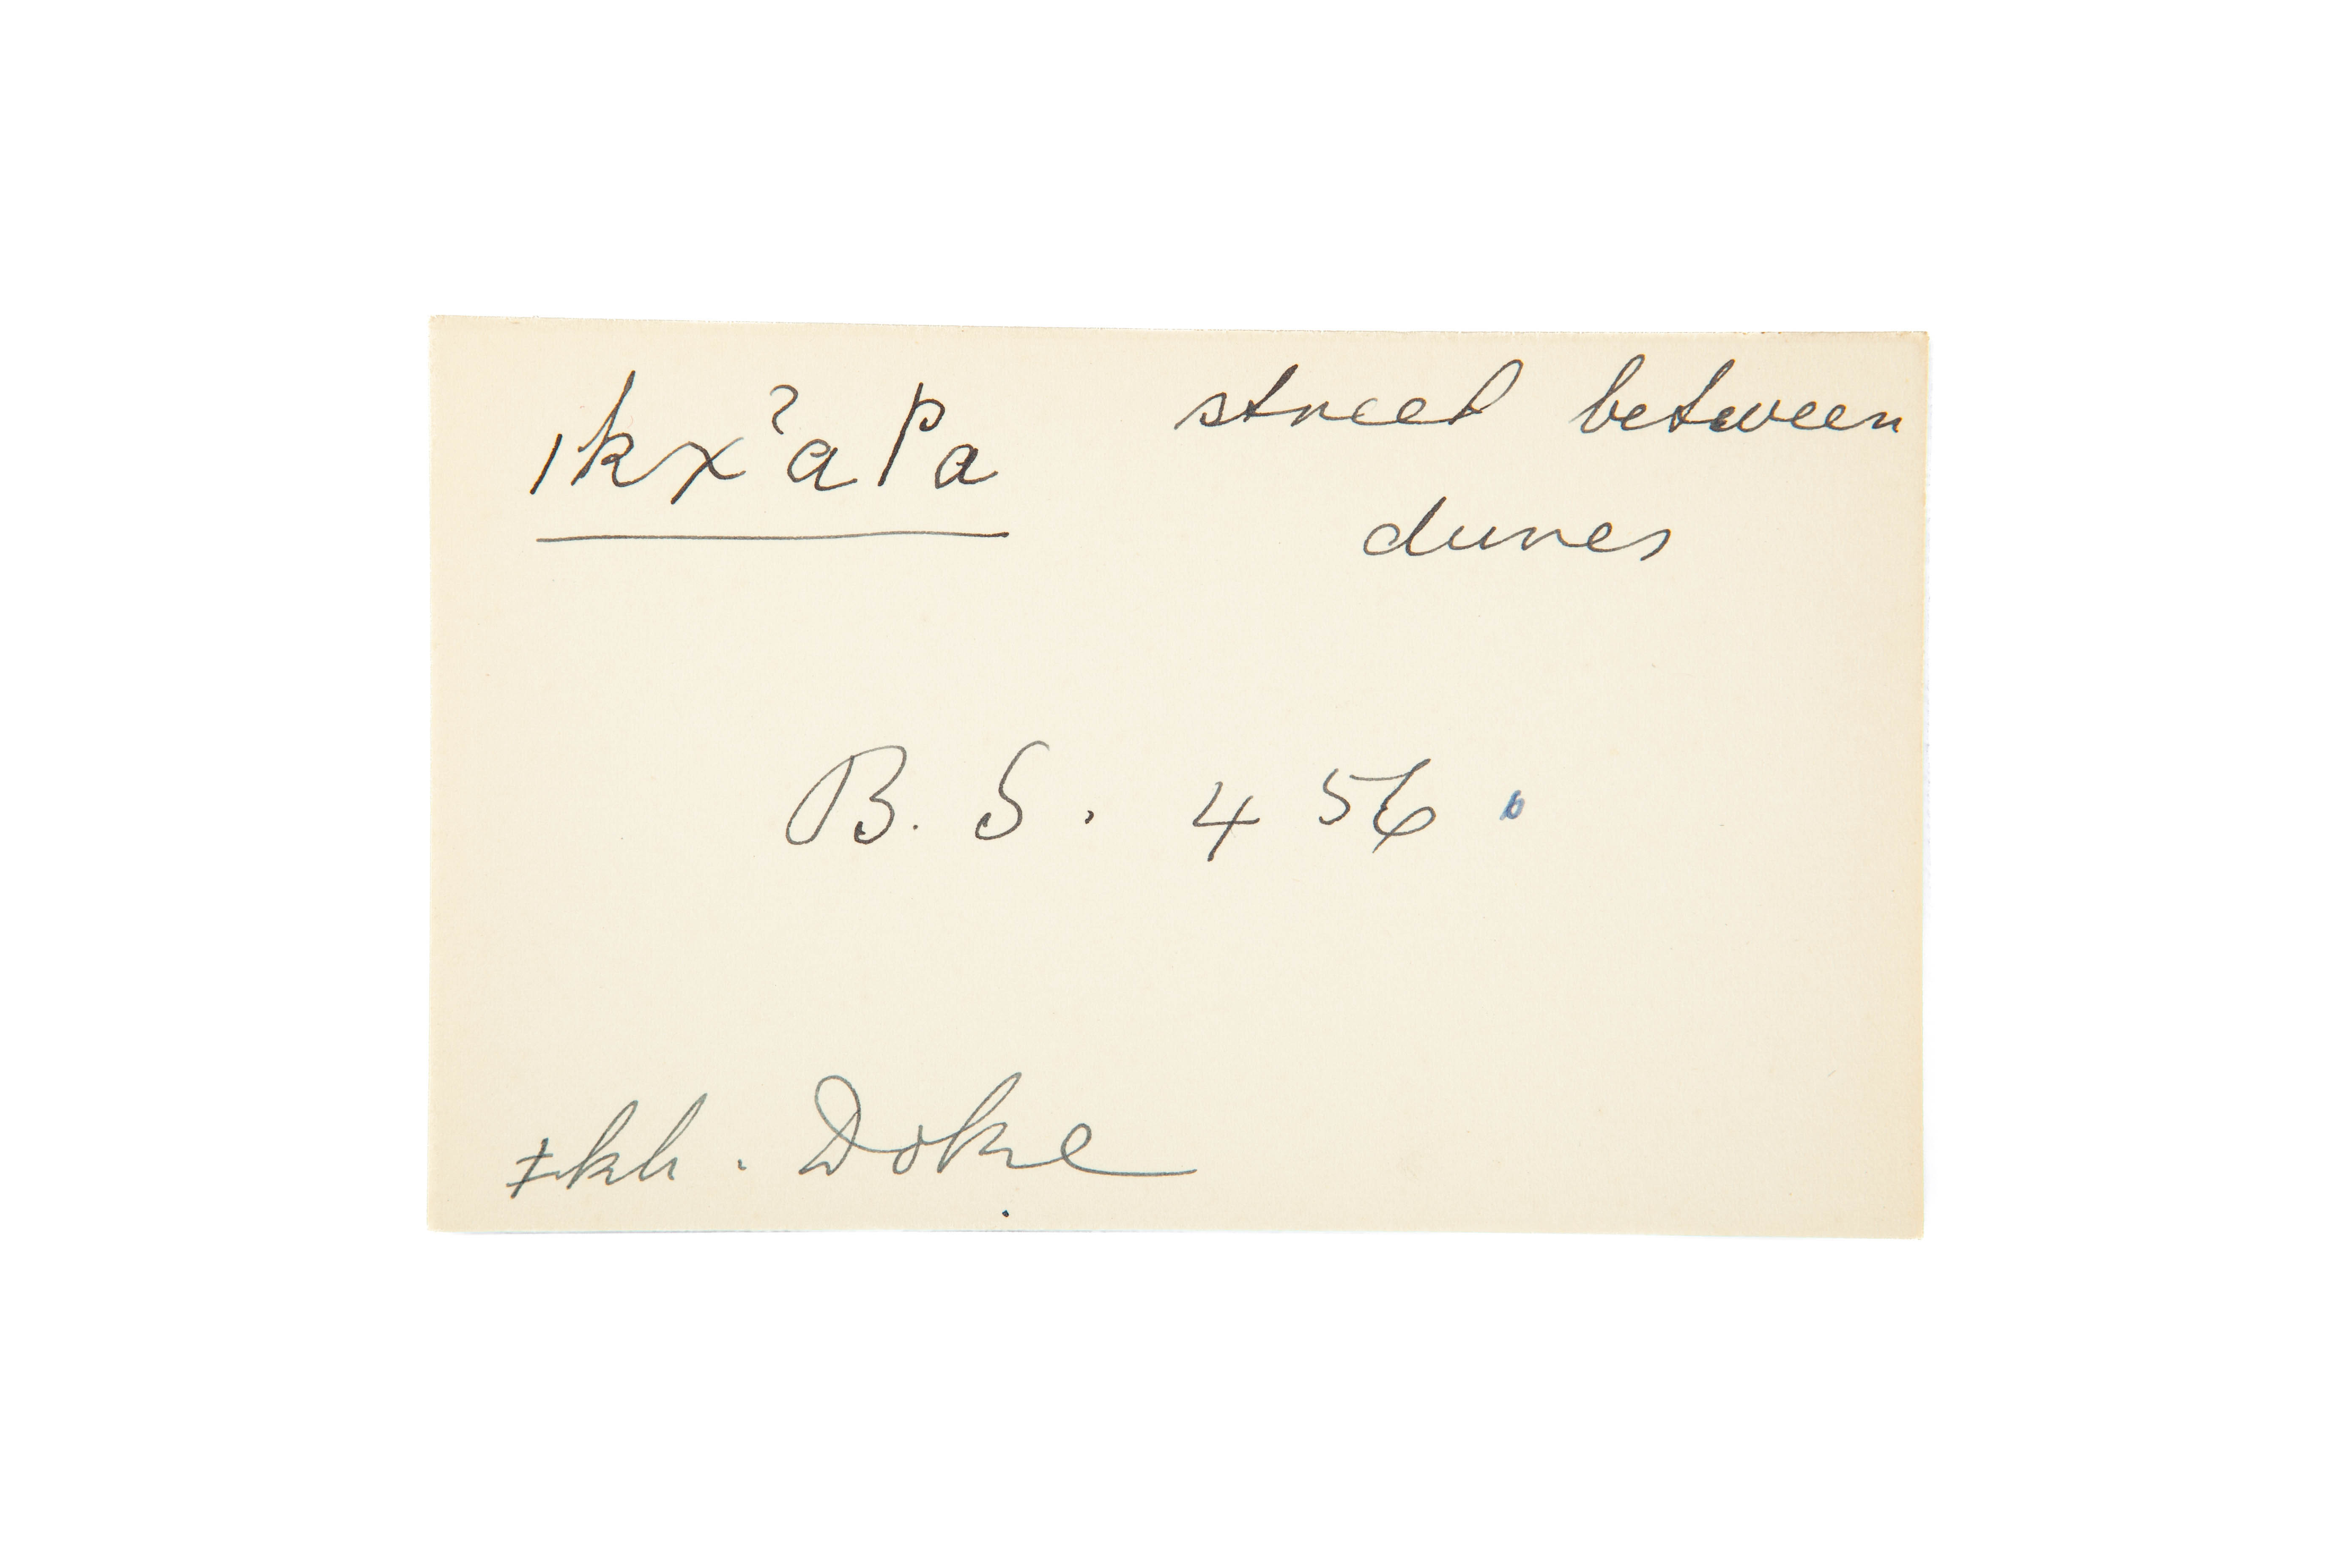 ǀkxˀapa street between
dunes
B. S. 456 b
ǂkh. Doke